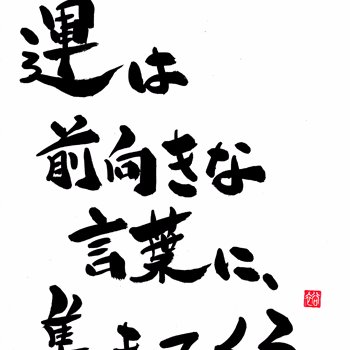 運は
前向きな
言葉に、
集まってくる